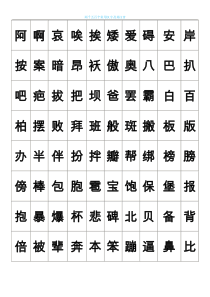 阿 啊 哀 唉 挨 矮 爱 碍 安 岸
按 案 暗 昂 袄 傲 奥 八 巴 扒
吧 疤 拔 把 坝 爸 罢 霸 白 百
柏 摆 败 拜 班 般 斑 搬 板 版
办 半 伴 扮 拌 瓣 帮 绑 榜 膀
傍 棒 包 胞 雹 宝 饱 保 堡 报
抱 暴 爆 杯 悲 碑 北 贝 备 背
倍 被 辈 奔 本 笨 蹦 逼 鼻 比